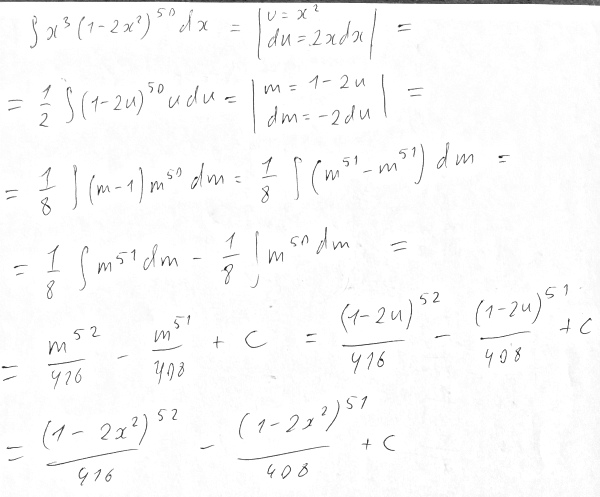 ∫ x³ (1-2x²)⁵⁰ dx = | u = x² du = 2xdx | =
= 1/2 ∫ (1-2u)⁵⁰ u du = | m = 1-2u dm = -2du | =
= 1/8 ∫ (m-1) m⁵⁰ dm = 1/8 ∫ (m⁵¹ - m⁵¹) dm =
= 1/8 ∫ m⁵¹ dm - 1/8 ∫ m⁵⁰ dm =
= m⁵²/416 - m⁵¹/408 + C = (1-2u)⁵²/416 - (1-2u)⁵¹/408 + C
= (1-2x²)⁵²/416 - (1-2x²)⁵¹/408 + C